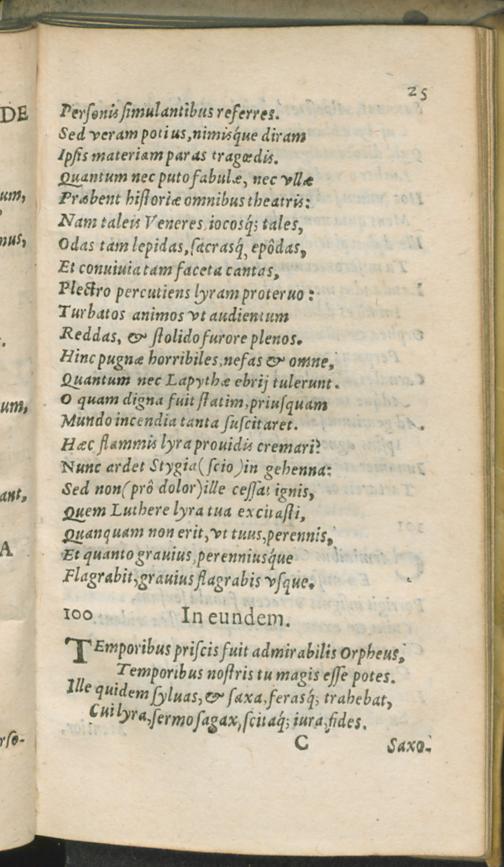 25
DE
Personis simulantibus referres.
Sed veram potius, nimisque diram
Ipsis materiam paras tragœdis.
Quantum nec puto fabulæ, nec vllæ
Præbent historiæ omnibus theatris:
Nam taleis Veneres, iocosq́; tales,
Odas tam lepidas, sacrasq́, epôdas,
Et conuiuia tam faceta cantas,
Plectro percutiens lyram proteruo:
Turbatos animos vt audientum
Reddas, & stolido furore plenos.
Hinc pugnæ horribiles, nefas & omne,
Quantum nec Lapythæ ebrij tulerunt.
O quam digna fuit statim, priusquam
Mundo incendia tanta suscitaret.
Hæc flammis lyra prouidis cremari?
Nunc ardet Stygia (scio) in gehenna:
Sed non (prô dolor) ille cessat ignis,
Quem Luthere lyra tua excitasti,
Quanquam non erit, vt tuus, perennis,
Et quanto grauius, perenniusque
Flagrabit, grauius flagrabis vsque.
100 In eundem.
TEmporibus priscis fuit admirabilis Orpheus,
Temporibus nostris tu magis esse potes.
Ille quidem syluas, & saxa, ferasq́; trahebat,
Cui lyra, sermo sagax, scitaq́; iura, fides.
C Saxo-
um,
nus,
um,
ant,
A
rso-